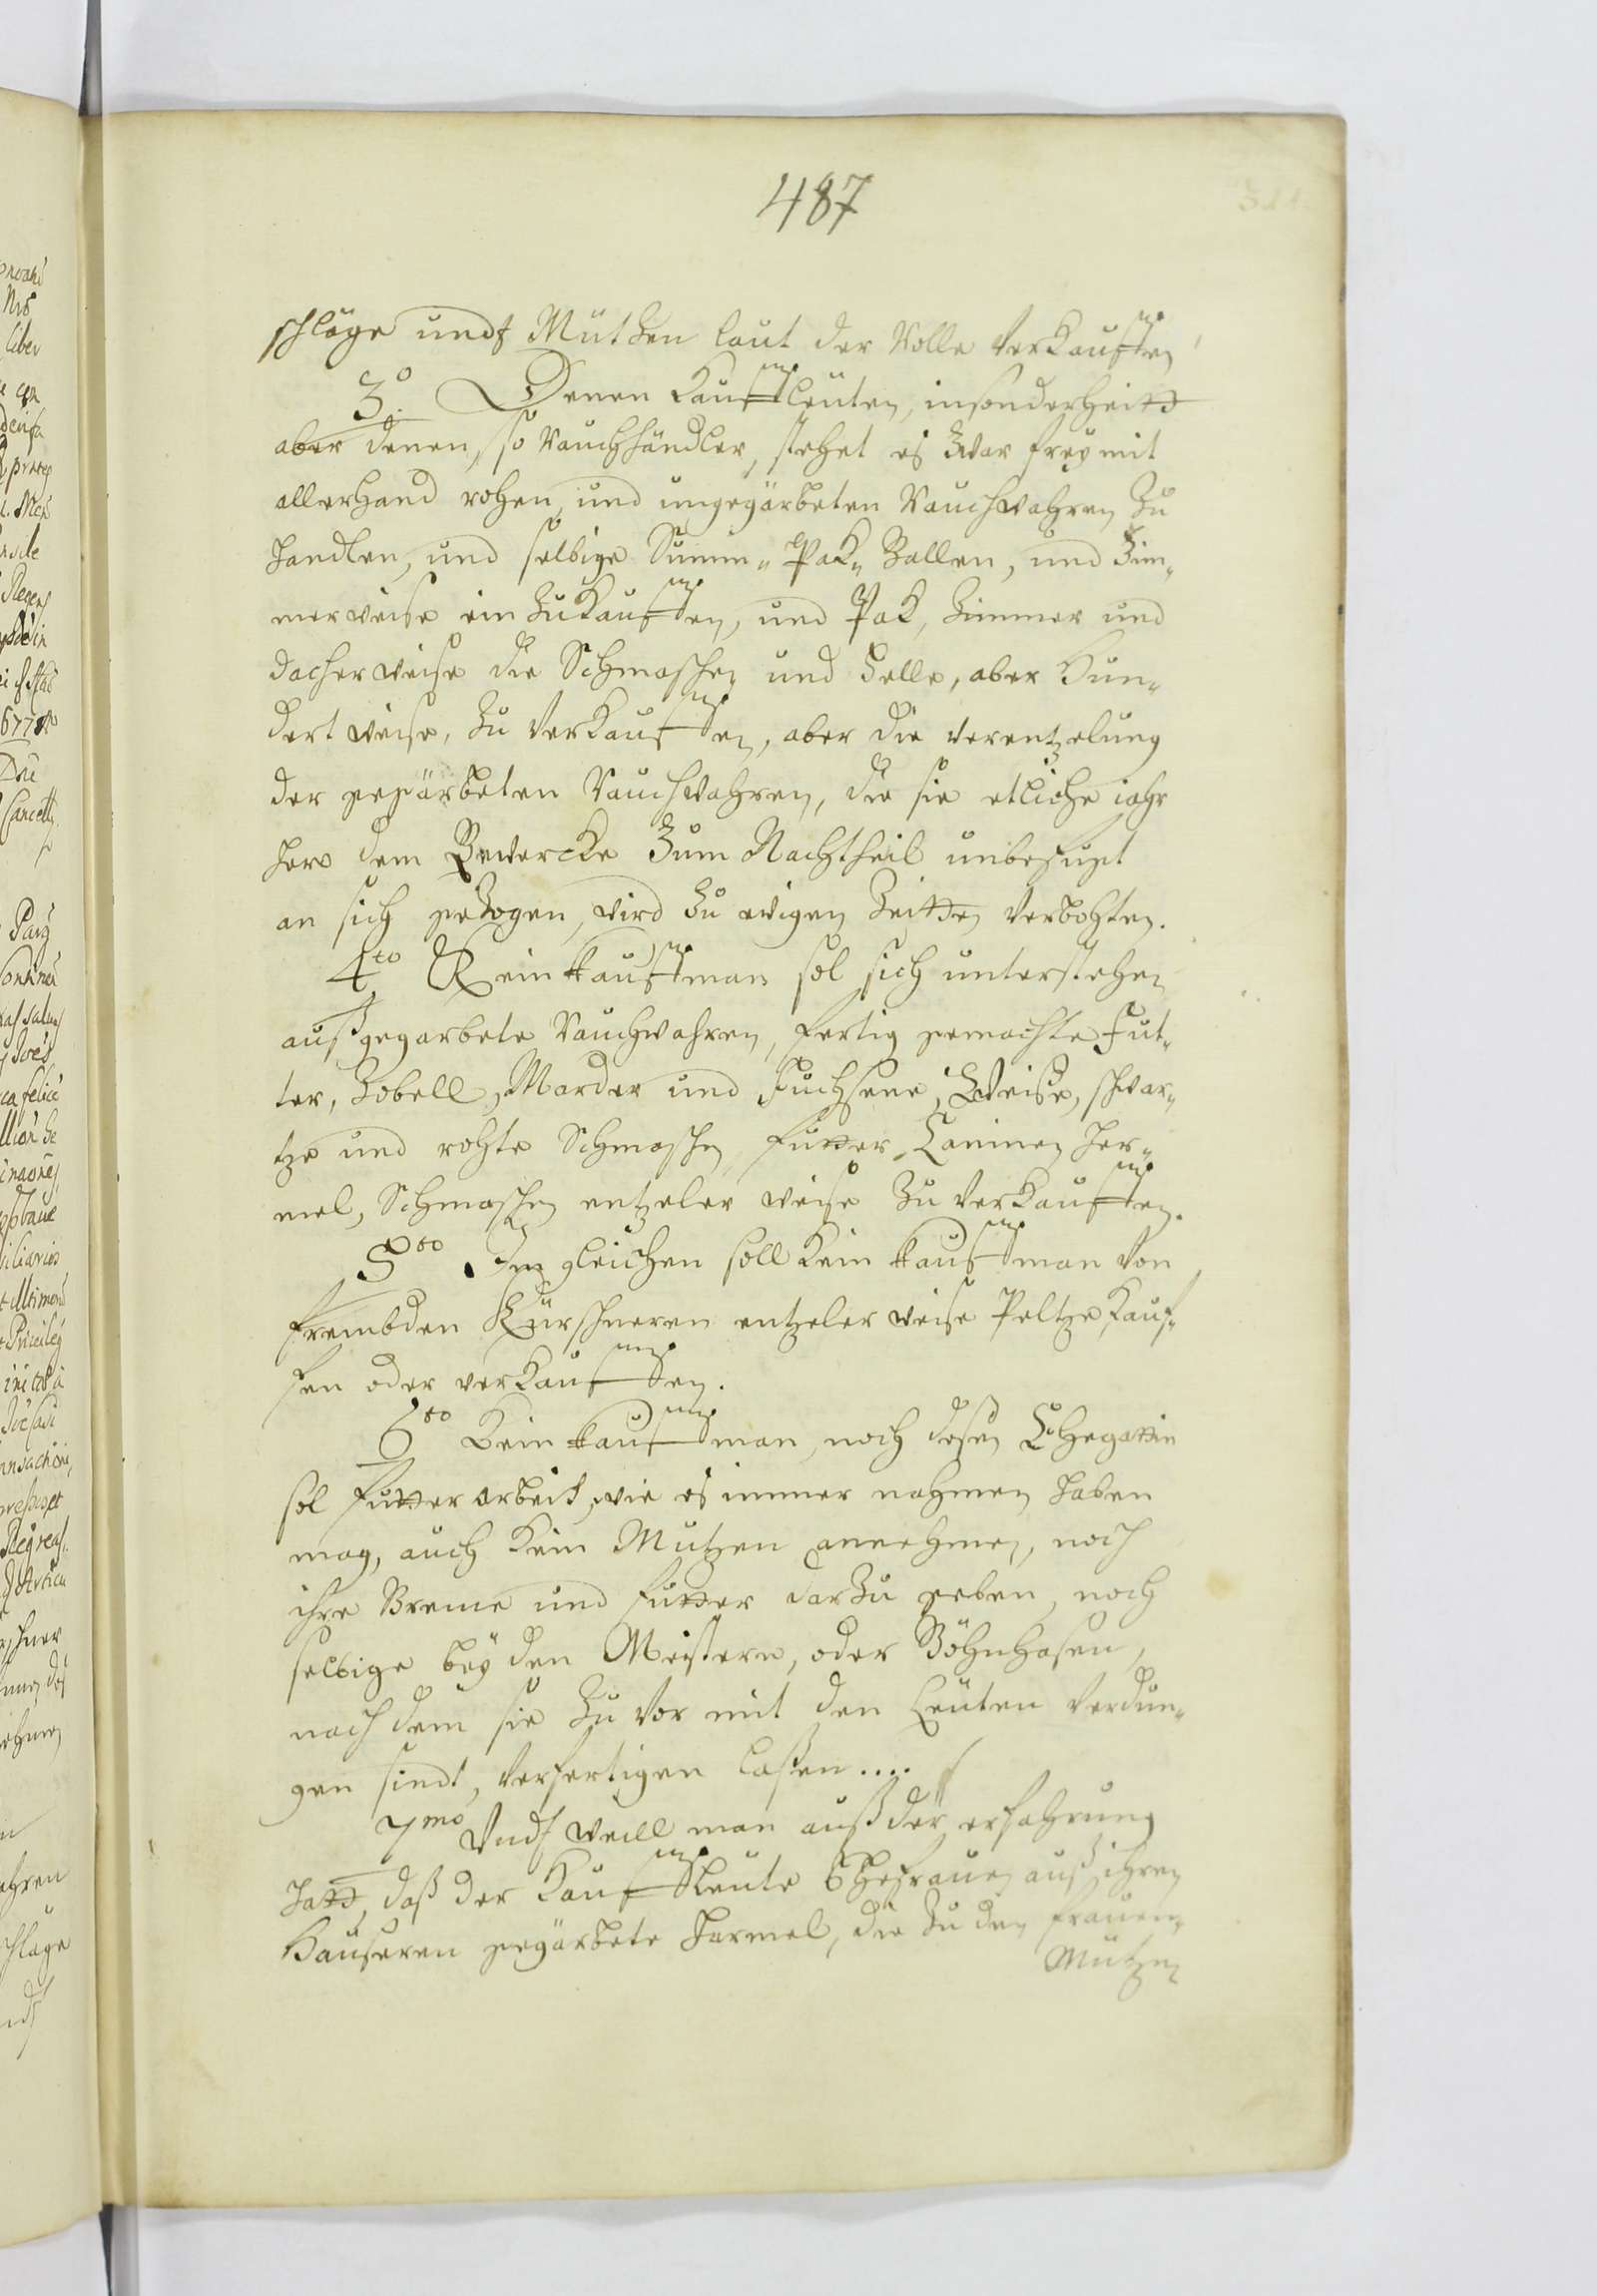 487
schläge undt Mützen laut der Rolle verkauffen
3o. Denen Kauffleüten, insonderheitt
aber denen, so Rauchhändler, stehet es zwar frey mit
allerhand rohen, und ungegärbeten Rauchwahren zu
handlen, und selbige Summ- Pak- Ballen, und Zim-
merweise ein zukauffen, und Pak, Zimmer und
dacherweise die Schmaschen und Felle, aber Hun-
dert weise, zu verkauffen, aber die verentzelung
der gegärbeten Rauchwahren, die sie etliche jahr
hero dem Gewercke zum Nachtheil unbefugt
an sich gezogen, wird zu ewigen Zeitten verbohten.
4to Kein kauffman sol sich unterstehen
außgegarbete Rauchwahren, fertig gemachte Fut-
ter, Zobell, Marder und Fuchsene, Weiße, schwar-
tze und rohte Schmaschen futter, Caninen Her-
mel, Schmaschen entzeler weise zu verkauffen.
5to Im gleichen soll kein kauffman von
frembden Kürschneren entzeler weise Peltze kauf-
fen oder verkauffen.
6to Kein kauffman, noch deßen Ehegattin
sol futter arbeit, wie es immer nahmen haben
mag, auch kein Mutzen annehmen, noch
ihre Breme und futter darzu geben, noch
selbige bey den Meistern, oder Böhnhasen,
nach dem sie zu vor mit den Leuten verdun-
gen sindt, verfertigen laßen....
7mo Undt weill man auß der erfahrung
hatt, daß der Kauffleute Ehefrauen auß ihren
Hauseren gegärbete Harmel, die zu den frauen-
Mützen